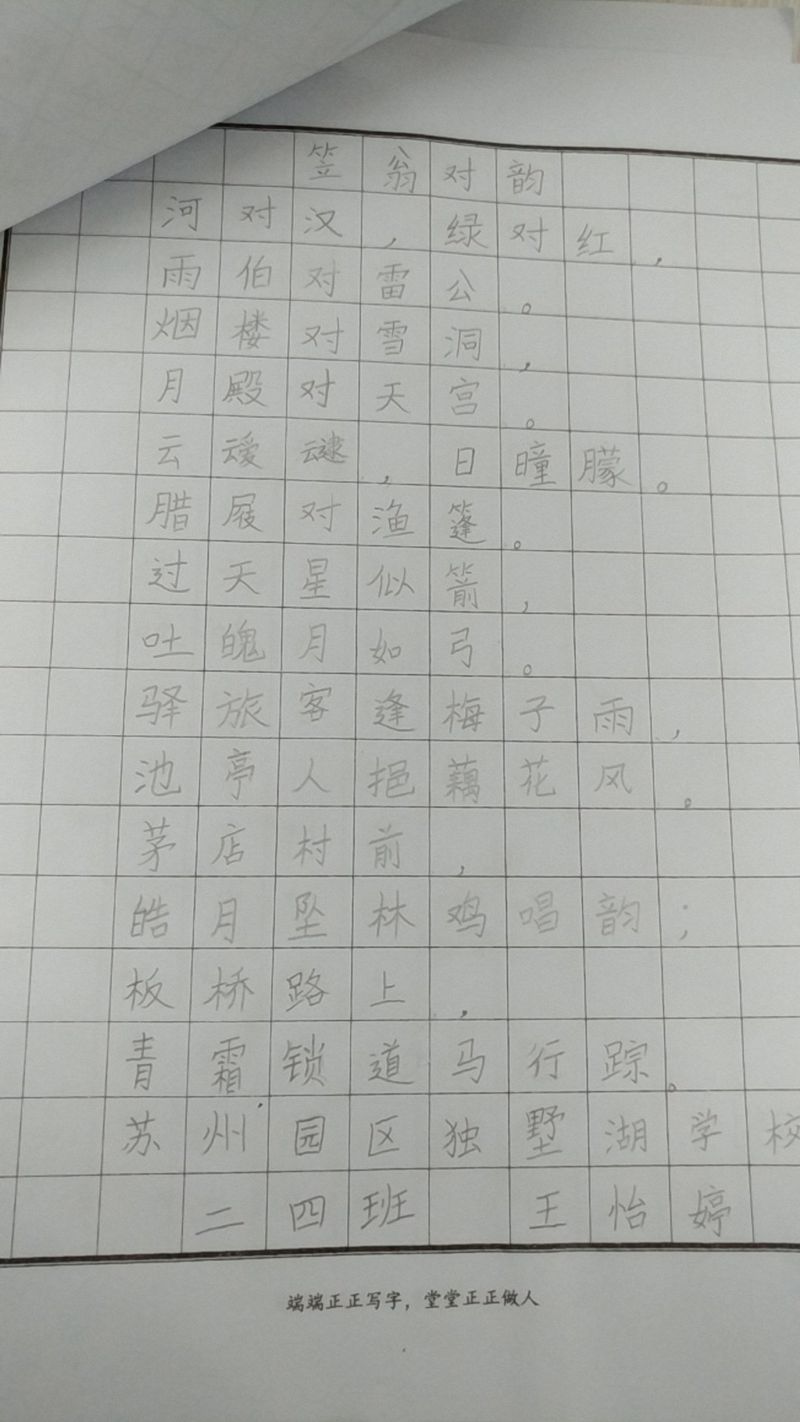 笠翁对韵
河对汉，绿对红，
雨伯对雷公。
烟楼对雪洞，
月殿对天宫。
云叆叇，日曈朦。
腊屐对渔篷。
过天星似箭，
吐魄月如弓。
驿旅客逢梅子雨，
池亭人挹藕花风。
茅店村前，
皓月坠林鸡唱韵；
板桥路上，
青霜锁道马行踪。
苏州园区独墅湖学校
二四班 王怡婷
端端正正写字，堂堂正正做人